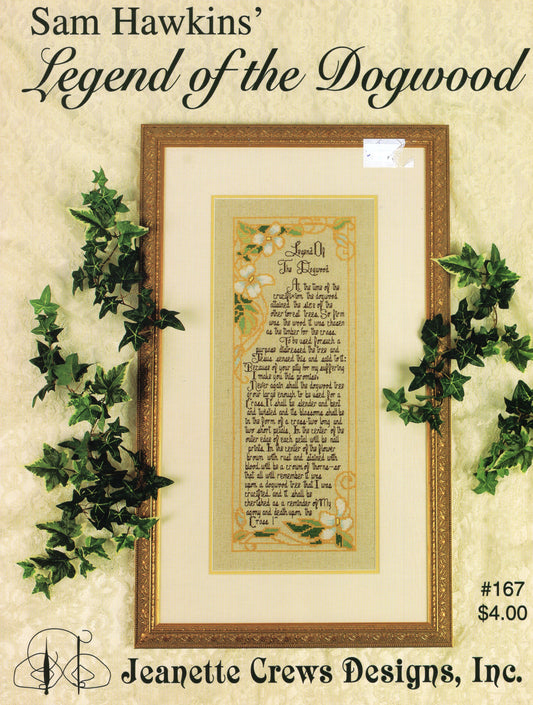 Sam Hawkins'
Legend of the Dogwood
Legend Of
The Dogwood
At the time of the
crucifixion the dogwood
attained the size of the
other forest trees. So firm
was the wood it was chosen
as the timber for the cross.
To be used for such a
purpose distressed the tree and
Jesus sensed this and said to it:
Because of your pity for my suffering
I make you this promise:
Never again shall the dogwood tree
grow large enough to be used for a
Cross. It shall be slender and bent
and twisted and its blossoms shall be
in the form of a cross-two long and
two short petals. In the center of the
outer edge of each petal will be nail
prints. In the center of the flower
brown with rust and stained with
blood will be a crown of thorns-so
that all will remember it was
upon a dogwood tree that I was
crucified and it shall be
cherished as a reminder of My
agony and death upon the
Cross!"
#167
$4.00
Jeanette Crews Designs, Inc.